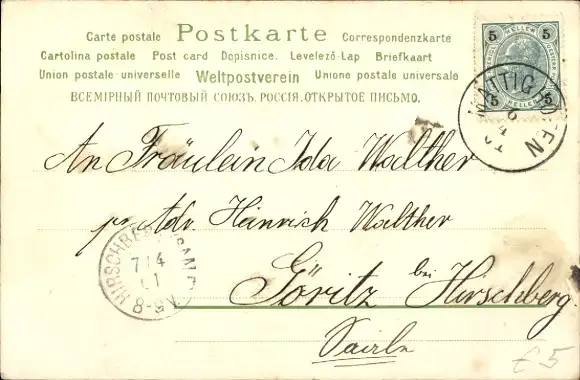 Carte postale Postkarte Correspondenzkarte
Cartolina postale Post card Dopisnice. Levelező-Lap Briefkaart
Union postale universelle Weltpostverein Unione postale universale
ВСЕМІРНЫЙ ПОЧТОВЫЙ СОЮЗЪ. РОССІЯ. ОТКРЫТОЕ ПИСЬМО.
5 HELLER 5
5 HELLER 5
MATTIGHOFEN
An Fräulein Ida Walther
pr. Adr. Heinrich Walther
HIRSCHBERG
7/4
8-9V
Göritz bei Hirschberg.
Saale
£5